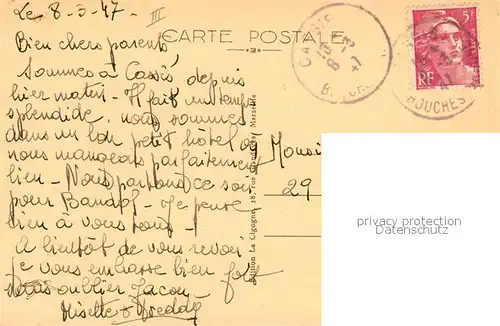 Le 8-3-47-
III
CARTE POSTALE
Bien chers parents
Sommes à Cassis depuis
hier matin. Il fait un temps
splendide, nous sommes
dans un bon petit hôtel où
nous mangeons parfaitement
bien - Nous partons ce soir
pour Bandol - Je pense
bien à vous tous -
à bientôt de vous revoir
je vous embrasse bien fort
sans oublier Jacou
Misette & Freddy
Edition La Cigogne, 18, rue Marseille
8
BOUCHES
5F
RF
Monsi
29
privacy protection
Datenschutz